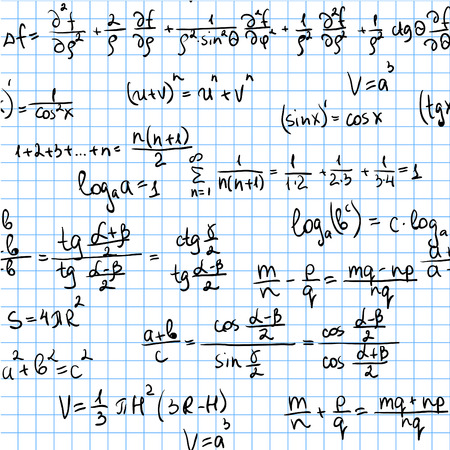 Δf = ∂²f/∂ρ² + 2/ρ ∂f/∂ρ + 1/(ρ²·sin²θ) ∂²f/∂φ² + 1/ρ² ∂²f/∂θ² + 1/ρ² ctgθ ∂f/∂θ
V=a³
)' = 1/cos²x
(u+v)ⁿ = uⁿ + vⁿ
(sinx)' = cosx
(tgx
1+2+3+...+n = n(n+1)/2
∞ Σ n=1 1/n(n+1) = 1/1·2 + 1/2·3 + 1/3·4 = 1
logₐa=1
logₐ(bᶜ) = c·logₐ
b
b/-b = tg (α+β)/2 / tg (α-β)/2 = ctg γ/2 / tg (α-β)/2
m/n - p/q = (mq-np)/nq
a+/a-
S=4πR²
(a+b)/c = cos (α-β)/2 / sin γ/2 = cos (α-β)/2 / cos (α+β)/2
a²+b²=c²
V=1/3 πH²(3R-H)
m/n + p/q = (mq+np)/nq
V=a³